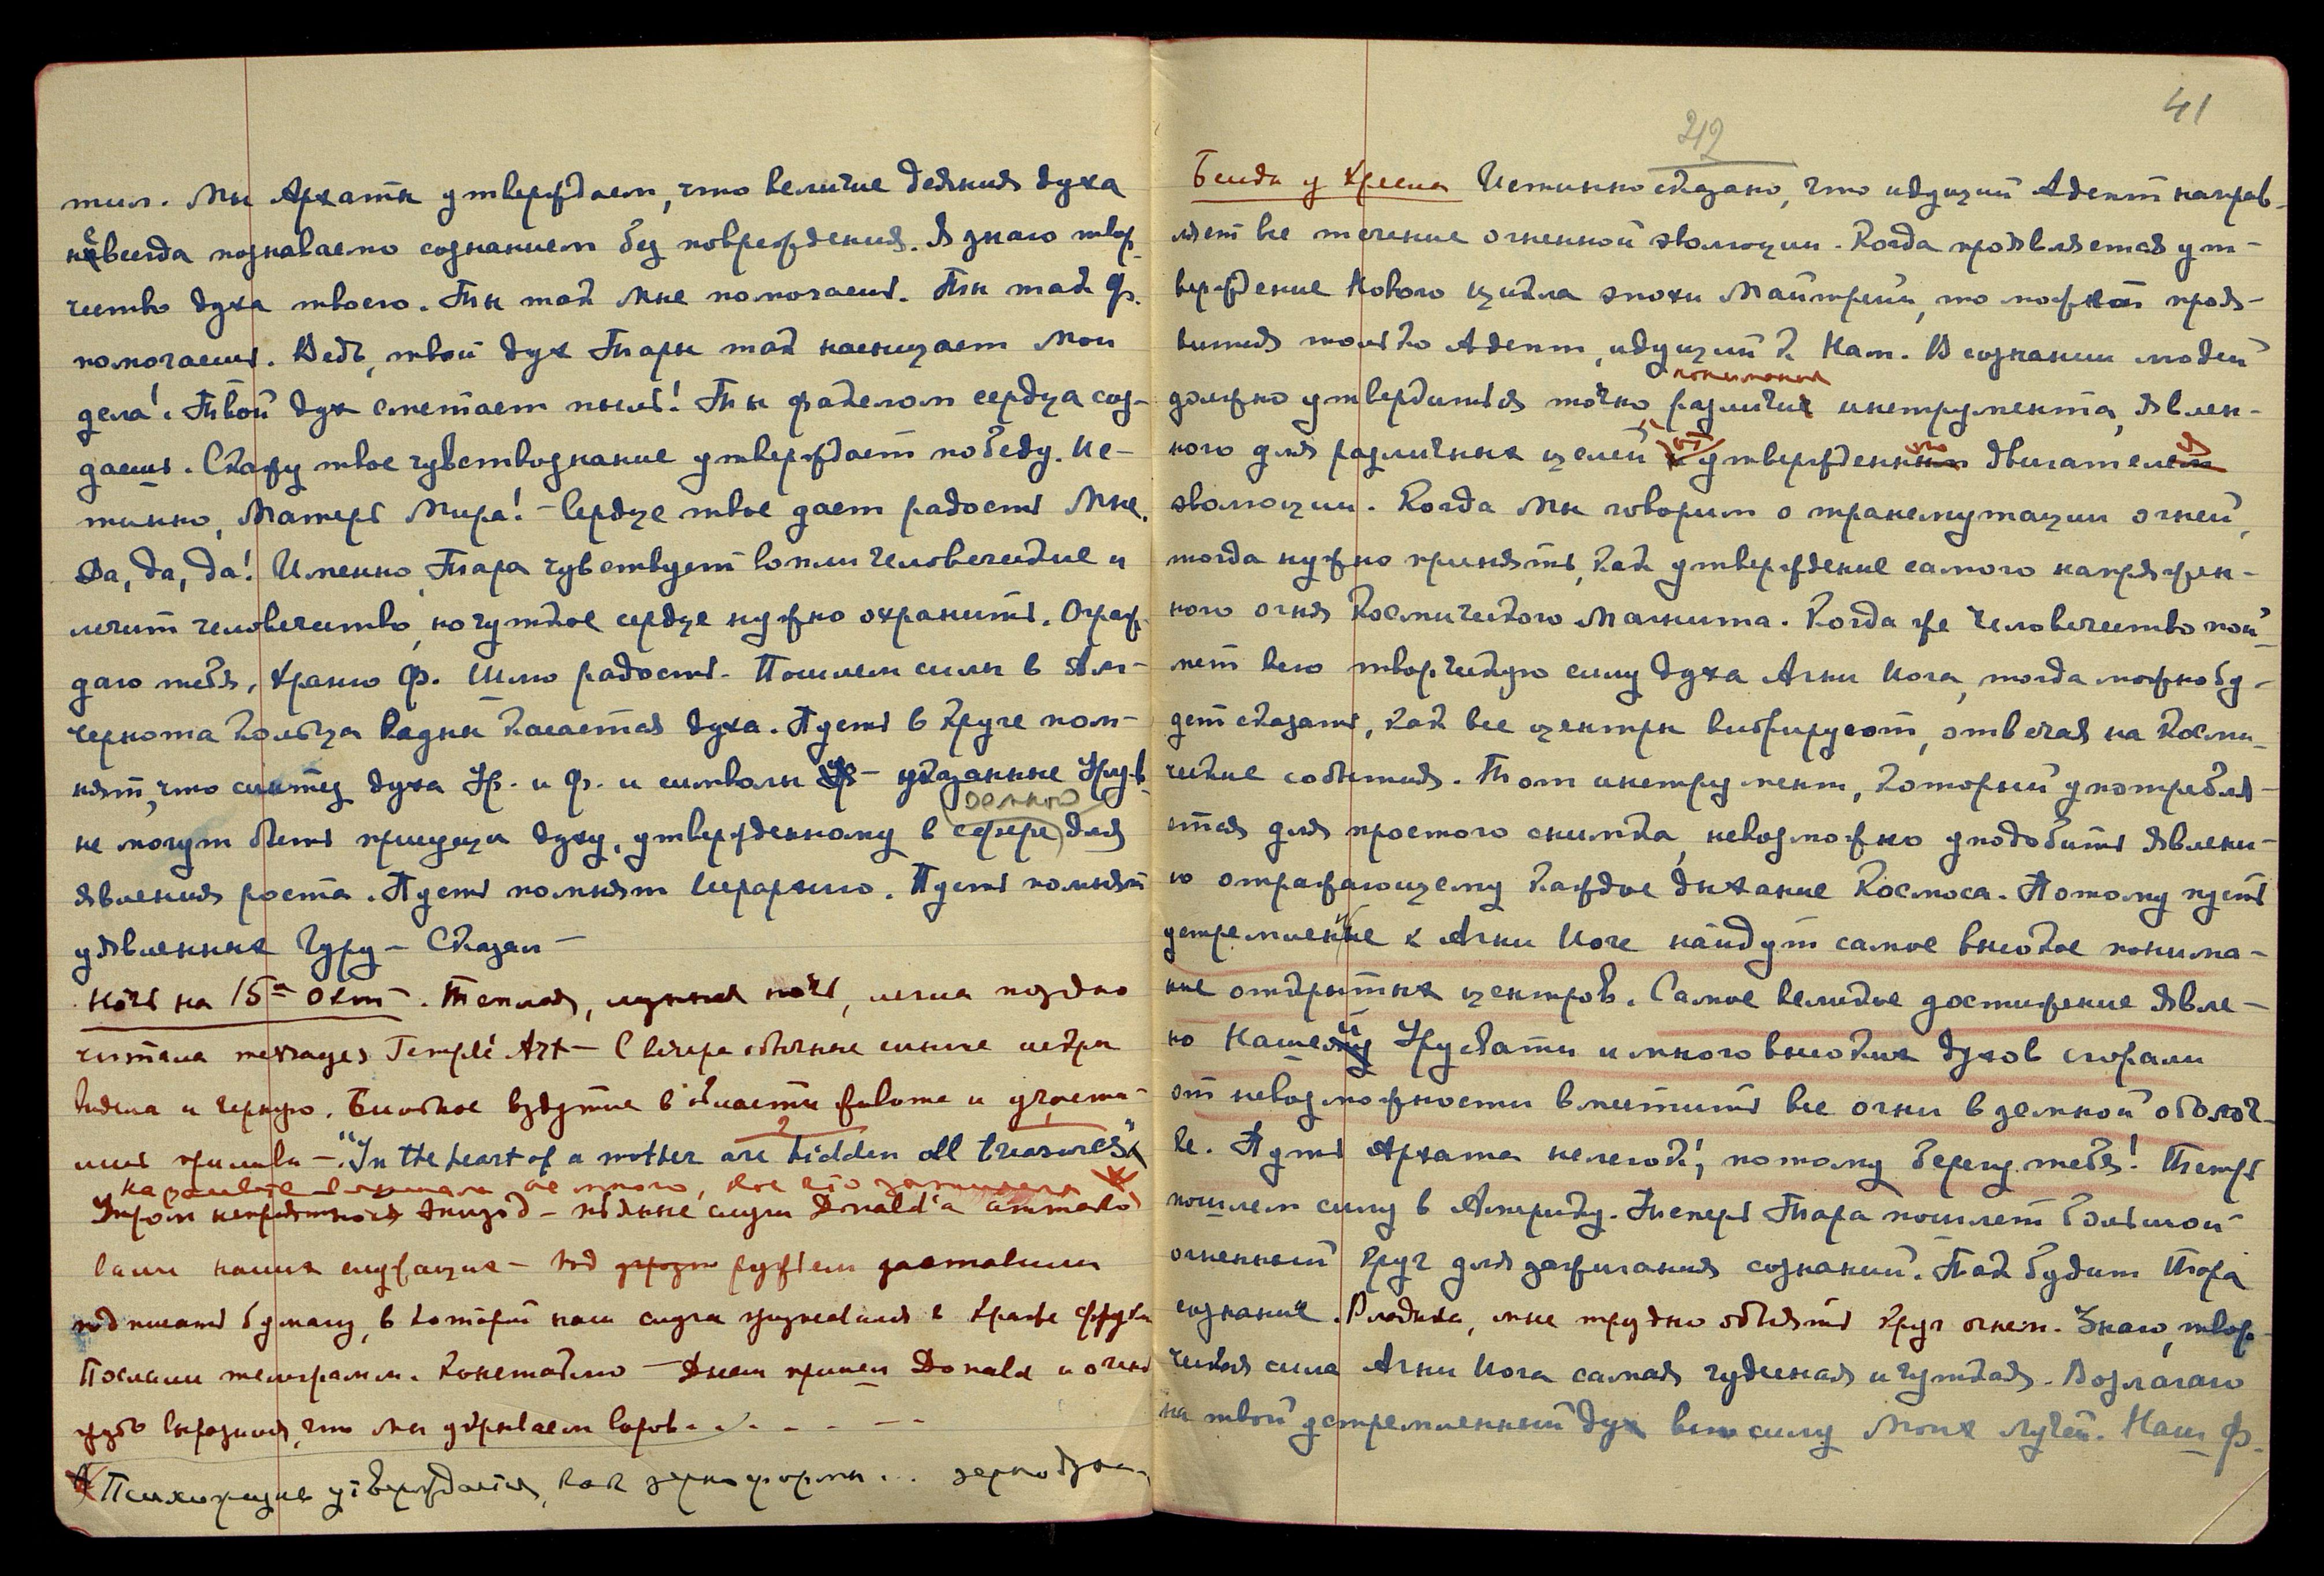 тил. Мы Архаты утверждаем, что величие деяния духа
не всегда познаваемо сознанием без повреждения. Я знаю твор-
чество духа твоего. Ты так Мне помогаешь. Ты так Ф.
помогаешь. Ведь, твой дух Тары так насыщает Мои
дела! Твой дух сметает пыль! Ты факелом сердца соз-
даешь. Скажу твое чувствознание утверждает победу. Ис-
тинно, Матерь Мира! – Сердце твое дает радость Мне.
Да, да, да! Именно, Тара чувствует вопли человеческие и
лечит человечество, но чуткое сердце нужно охранить. Ограж-
даю тебя, храню Ф. Шлю радость. Пошлем силы в Ам-
чернота кольца Радны касается духа. Пусть в круге пом-
нят, что синтез духа Ур. и Ф. и символы указанные Урув.
земной
не могут быть присущи духу, утвержденному в сфере для
явления роста. Пусть помнят Иерархию. Пусть помнят
уявленных Гуру – Сказал –
Ночь на 15-ое Окт –. Теплая, лунная ночь, легла поздно
читала messages Temple Art – С вечера обычные синие искры
видела и черную. Большое вздутие в области живота и участи-
лись приливы – "In the heart of a mother are hidden all treasures"
на рассвете слышала много, кое что записала
Утром неприятный эпизод – пьяные слуги Donald'а аттако-
вали наших служащих – под ружьем заставили
подписать бумагу, в которой наш слуга признавался в краже фрукт
Послали телеграмм. Констаблю – Днем пришел Donald и очень
грубо выразился, что мы укрываем воров. . . – – –
Психожизнь утверждается, как зерно формы ... зерно духа
41
212
Беседа у Кресла Истинно сказано, что идущий Адепт направ-
ляет все течение огненной эволюции. Когда проявляется ут-
верждение Нового цикла эпохи Майтрейи, то может проя-
виться только Адепт, идущий к Нам. В сознании людей
понимание
должно утвердиться точно различия инструмента, явлен-
ного для различных целей от утвержденного двигателя
эволюции. Когда Мы говорим о трансмутации огней,
тогда нужно принять, как утверждение самого напряжен-
ного огня Космического Магнита. Когда же человечество пой-
мет всю творческую силу духа Агни Йога, тогда можно бу-
дет сказать, как все центры вибрируют, отвечая на косми-
ческие события. Тот инструмент, который употребля-
ется для простого снимка, невозможно уподобить явлени-
ю отражающему каждое дыхание Космоса. Потому пусть
устремленные к Агни Йоге найдут самое высокое понима-
ние открытых центров. Самое великое достижение явле-
но Нашей Урусвати и много высоких духов сгорали
от невозможности вместить все огни в земной оболоч-
ке. Путь Архата нелегок!, потому берегу тебя! Теперь
пошлем силу в Америку. Теперь Тара пошлет большой
огненный круг для зажигания сознаний. Так будит Тара
сознание. Владыка, мне трудно объять круг огнем. Знаю, твор-
ческая сила Агни Йога самая чудесная и чуткая. Возлагаю
на твой устремленный дух всю силу Моих лучей. Наш Ф.